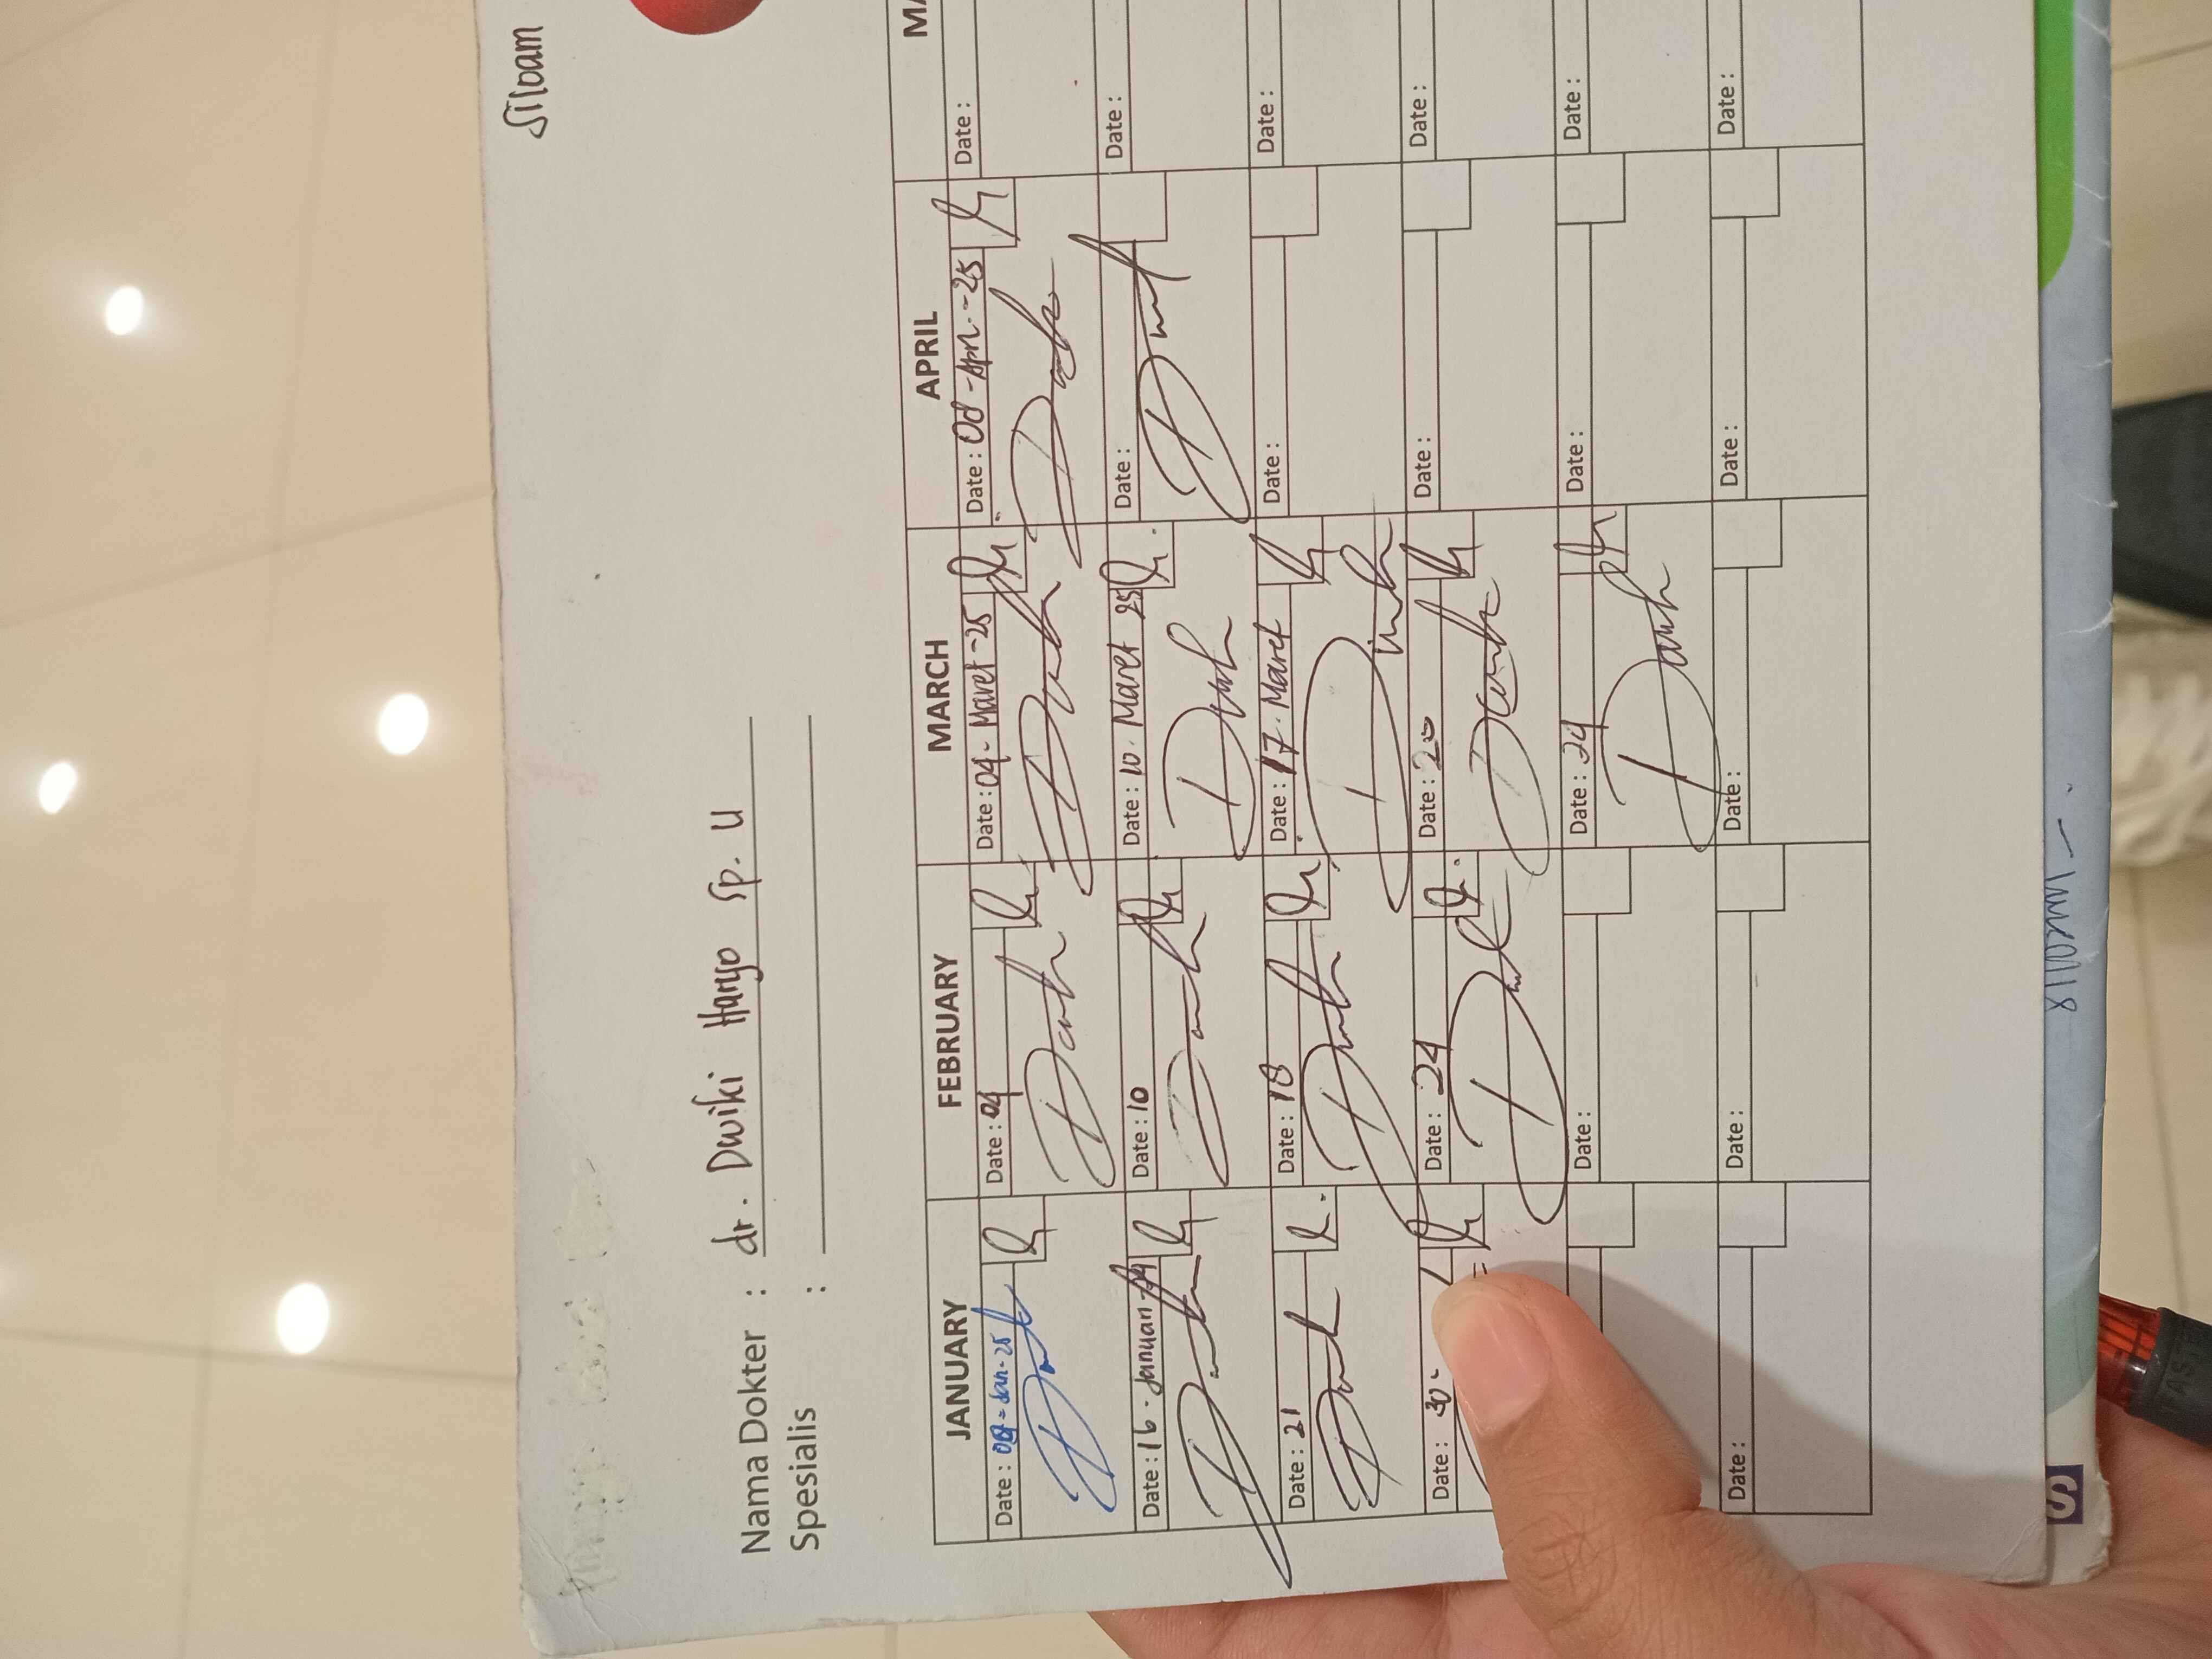 Siloam
Nama Dokter : dr. Dwiki Haryo Sp. U
Spesialis :
JANUARY FEBRUARY MARCH APRIL MA
Date : Jan-25 Date : 04 Date : 04 - Maret -25 Date : 08 - Apri -25 Date :
Date : 16 - Januari Date : 10 Date : 10 . Maret 25 Date : Date :
Date : 21 Date : 18 Date : 17 . Maret Date : Date :
Date : 30 Date : 24 Date : 20 Date : Date :
Date : Date : 24 Date : Date :
Date : Date : Date : Date : Date :
S